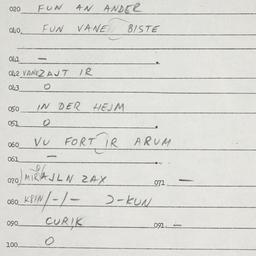 020 FUN AN ANDER
040 FUN VANE BISTE
041 —
042 VANEZAJT IR
043 O
050 IN DER HEJM
051 O
060 VU FORT IR ARUM
061 —
070 MIR AJLN ZAX 071 —
080 /-/- Ɔ-KUN
090 CURIK 091 —
100 O